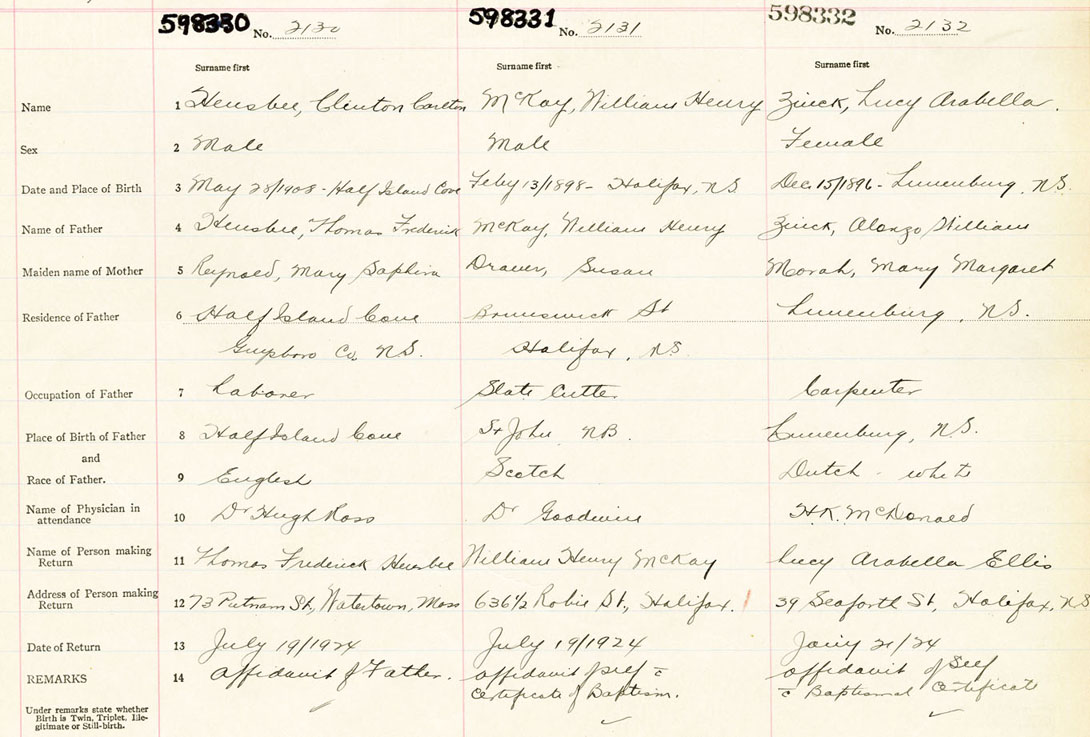 598330 No. 2130 598331 No. 2131 598332 No. 2132
Surname first Surname first Surname first
Name 1 Hensbee, Clinton Carlton McKay, William Henry Zinck, Lucy Arabella.
Sex 2 Male Male Female
Date and Place of Birth 3 May 28/1908 - Half Island Cove Feby 13/1898 - Halifax, NS Dec. 15/1896 - Lunenburg, NS.
Name of Father 4 Hensbee, Thomas Frederick McKay, William Henry Zinck, Alonzo William
Maiden name of Mother 5 Mary Saphira Susan Mary Margaret
Residence of Father 6 Half Island Cove Brunswick St Lunenburg, NS.
Guysboro Co, NS. Halifax, NS
Occupation of Father 7 Laborer Slate Cutter Carpenter
Place of Birth of Father 8 Half Island Cove St John NB. Lunenburg, NS.
and
Race of Father. 9 English Scotch Dutch - white
Name of Physician in
attendance 10 Dr Hugh Ross Dr Goodwin H.K. McDonald
Name of Person making
Return 11 Thomas Frederick Hensbee William Henry McKay Lucy Arabella Ellis
Address of Person making
Return 12 73 Putnam St, Watertown, Mass 636 1/2 Robie St, Halifax. 39 Seaforth St, Halifax, NS
Date of Return 13 July 19/1924 July 19/1924 21/24
REMARKS 14 Affidavit of Father. affidavit of self c̄ affidavit of Self
Certificate of Baptism. c̄ Baptismal Certificate
Under remarks state whether
Birth is Twin, Triplet. Ille-
gitimate or Still-birth.